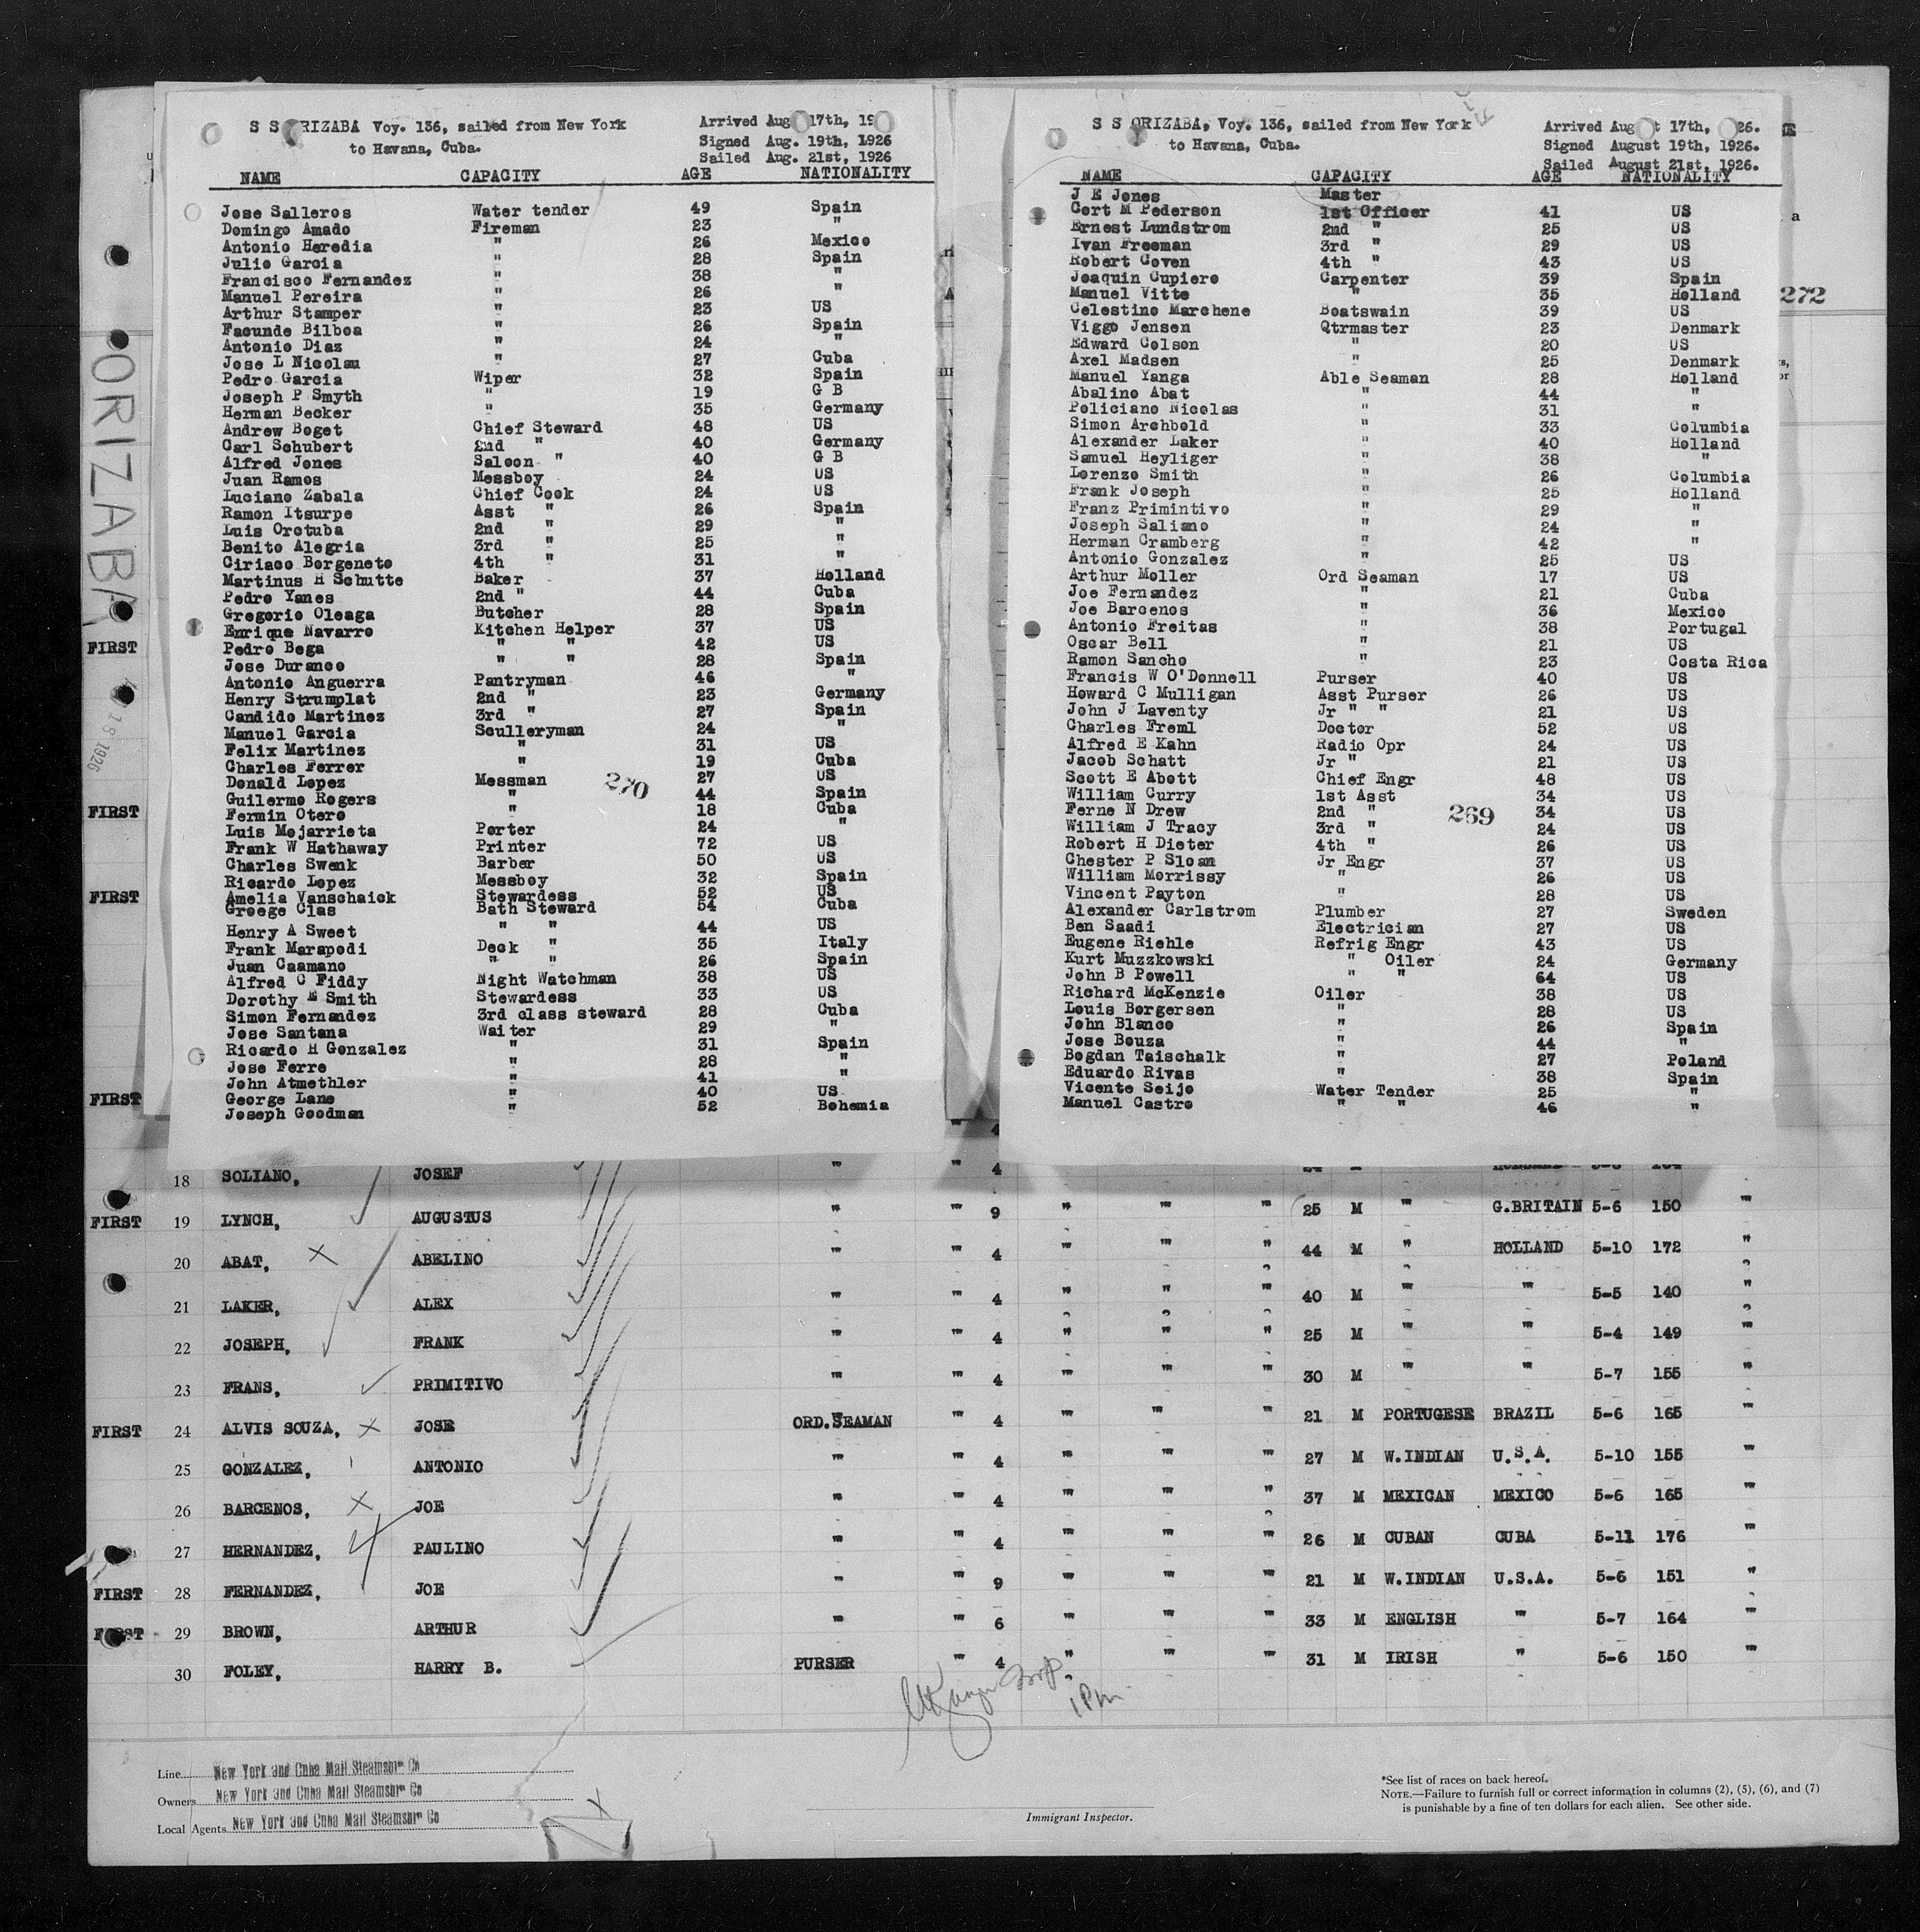 S S ORIZABA Voy. 136, sailed from New York
to Havana, Cuba.
Arrived Aug 17th, 19
Signed Aug. 19th, 1926
Sailed Aug. 21st, 1926
NAME CAPACITY AGE NATIONALITY
Jose Salleros Water tender 49 Spain
Domingo Amado Fireman 23 "
Antonio Heredia " 26 Mexico
Julio Garcia " 28 Spain
Francisco Fernandez " 38 "
Manuel Pereira " 26 "
Arthur Stamper " 23 US
Facundo Bilboa " 26 Spain
Antonio Diaz " 24 "
Jose L Nicolau " 27 Cuba
Pedro Garcia Wiper 32 Spain
Joseph P Smyth " 19 G B
Herman Becker " 35 Germany
Andrew Boget Chief Steward 48 US
Carl Schubert 2nd " 40 Germany
Alfred Jones Saloon " 40 G B
Juan Ramos Messboy 24 US
Luciano Zabala Chief Cook 24 US
Ramon Itsurpe Asst " 26 Spain
Luis Orotuba 2nd " 29 "
Benito Alegria 3rd " 25 "
Ciriaco Borgeneto 4th " 31 "
Martinus H Schutte Baker 37 Holland
Pedro Yanes 2nd " 44 Cuba
Gregorio Oleaga Butcher 28 Spain
Enrique Navarro Kitchen Helper 37 US
Pedro Bega " " 42 US
Jose Duranco " " 28 Spain
Antonio Anguerra Pantryman 46 "
Henry Strumplat 2nd " 23 Germany
Candido Martinez 3rd " 27 Spain
Manuel Garcia Sculleryman 24 "
Felix Martinez " 31 US
Charles Ferrer " 19 Cuba
Donald Lopez Messman 27 US
270
Guilermo Rogers " 44 Spain
Fermin Otero " 18 Cuba
Luis Mojarrieta Porter 24 "
Frank W Hathaway Printer 72 US
Charles Swenk Barber 50 US
Ricardo Lopez Messboy 32 Spain
Amelia Vanschaick Stewardess 52 US
Groege Clas Bath Steward 54 Cuba
Henry A Sweet " " 44 US
Frank Marapodi Deck " 35 Italy
Juan Caamano " " 26 Spain
Alfred C Fiddy Night Watchman 38 US
Dorothy E Smith Stewardess 33 US
Simon Fernandez 3rd class steward 28 Cuba
Jose Santana Waiter 29 "
Ricardo H Gonzalez " 31 Spain
Jose Ferre " 28 "
John Atmethler " 41 "
George Lane " 40 US
Joseph Goodman " 52 Bohemia
S S ORIZABA, Voy. 136, sailed from New York
to Havana, Cuba.
Arrived August 17th, 26.
Signed August 19th, 1926.
Sailed August 21st, 1926.
NAME CAPACITY AGE NATIONALITY
J E Jones Master
Cort M Pederson 1st Officer 41 US
Ernest Lundstrom 2nd " 25 US
Ivan Freeman 3rd " 29 US
Robert Coven 4th " 43 US
Joaquin Cupiero Carpenter 39 Spain
Manuel Vitte " 35 Holland
Celestino Marchene Boatswain 39 US
Viggo Jensen Qtrmaster 23 Denmark
Edward Colson " 20 US
Axel Madsen " 25 Denmark
Manuel Yanga Able Seaman 28 Holland
Abalino Abat " 44 "
Policiano Nicolas " 31 "
Simon Archbold " 33 Columbia
Alexander Laker " 40 Holland
Samuel Heyliger " 38 "
Lorenzo Smith " 26 Columbia
Frank Joseph " 25 Holland
Franz Primintivo " 29 "
Joseph Saliano " 24 "
Herman Cramberg " 42 "
Antonio Gonzalez " 25 US
Arthur Moller Ord Seaman 17 US
Joe Fernandez " 21 Cuba
Joe Barcenos " 36 Mexico
Antonio Freitas " 38 Portugal
Oscar Bell " 21 US
Ramon Sancho " 23 Costa Rica
Francis W O'Donnell Purser 40 US
Howard C Mulligan Asst Purser 26 US
John J Laventy Jr " " 21 US
Charles Freml Doctor 52 US
Alfred E Kahn Radio Opr 24 US
Jacob Schatt Jr " 21 US
Scott E Abott Chief Engr 48 US
William Curry 1st Asst 34 US
Ferne N Drew 2nd " 34 US
269
William J Tracy 3rd " 24 US
Robert H Dieter 4th " 26 US
Chester P Sloan Jr Engr 37 US
William Morrissy " 26 US
Vincent Payton " 28 US
Alexander Carlstrom Plumber 27 Sweden
Ben Saadi Electrician 27 US
Eugene Riehle Refrig Engr 43 US
Kurt Muzzkowski " Oiler 24 Germany
John B Powell " " 64 US
Richard McKenzie Oiler 38 US
Louis Borgersen " 28 US
John Blanco " 26 Spain
Jose Bouza " 44 "
Bogdan Taischalk " 27 Poland
Eduardo Rivas " 38 Spain
Vicente Seijo Water Tender 25 "
Manuel Castro " " 46 "
272
ORIZABA
18 1926
FIRST
FIRST
FIRST
FIRST
18 SOLIANO, JOSEF " " 4
FIRST 19 LYNCH, AUGUSTUS " " 9 " " " 25 M " G.BRITAIN 5-6 150 "
20 ABAT, ABELINO " " 4 " " " 44 M " HOLLAND 5-10 172 "
21 LAKER, ALEX " " 4 " " " 40 M " " 5-5 140 "
22 JOSEPH, FRANK " " 4 " " " 25 M " " 5-4 149 "
23 FRANS, PRIMITIVO " " 4 " " " 30 M " " 5-7 155 "
FIRST 24 ALVIS SOUZA, JOSE ORD.SEAMAN " 4 " " " 21 M PORTUGESE BRAZIL 5-6 165 "
25 GONZALEZ, ANTONIO " " 4 " " " 27 M W.INDIAN U.S.A. 5-10 155 "
26 BARCENOS, JOE " " 4 " " " 37 M MEXICAN MEXICO 5-6 165 "
27 HERNANDEZ, PAULINO " " 4 " " " 26 M CUBAN CUBA 5-11 176 "
FIRST 28 FERNANDEZ, JOE " " 9 " " " 21 M W.INDIAN U.S.A. 5-6 151 "
FIRST 29 BROWN, ARTHUR " " 6 " " " 33 M ENGLISH " 5-7 164 "
30 FOLEY, HARRY B. PURSER " 4 " " " 31 M IRISH " 5-6 150 "
1 Pm
Line New York and Cuba Mail Steamship Co
Owners New York and Cuba Mail Steamship Co
Local Agents New York and Cuba Mail Steamship Co
Immigrant Inspector.
*See list of races on back hereof.
NOTE.—Failure to furnish full or correct information in columns (2), (5), (6), and (7)
is punishable by a fine of ten dollars for each alien. See other side.